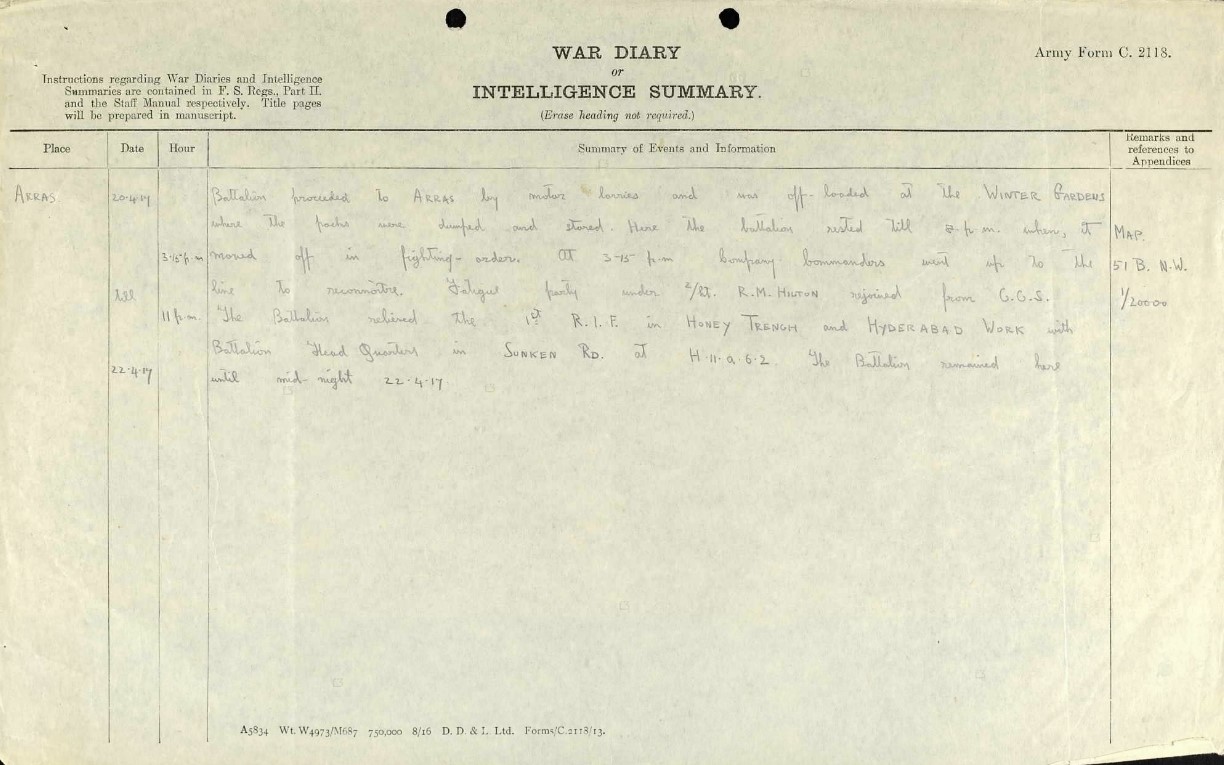 WAR DIARY
or
INTELLIGENCE SUMMARY.
(Erase heading not required.)
Army Form C. 2118.
Instructions regarding War Diaries and Intelligence
Summaries are contained in F. S. Regs., Part II.
and the Staff Manual respectively. Title pages
will be prepared in manuscript.
Place Date Hour Summary of Events and Information Remarks and
references to
Appendices
ARRAS 20·4·17 Battalion proceeded to ARRAS by motor lorries and was off-loaded at the WINTER GARDENS
where the packs were dumped and stored. Here the battalion rested till p.m. when, it MAP.
3·15 p.m moved off in fighting-order. At 3-15 p.m Company Commanders went up to the 51 B. N.W.
till line to reconnoitre. Fatigue party under 2/Lt. R.M. HILTON rejoined from C.C.S. 1/20000
11 p.m. The Battalion relieved the 1st R.I.F. in HONEY TRENCH and HYDERABAD WORK with
Battalion Head Quarters in SUNKEN RD. at H·11·a·6·2. The Battalion remained here
22·4·17 until mid-night 22·4·17.
A5834 Wt. W4973/M687 750,000 8/16 D. D. & L. Ltd. Forms/C.2118/13.